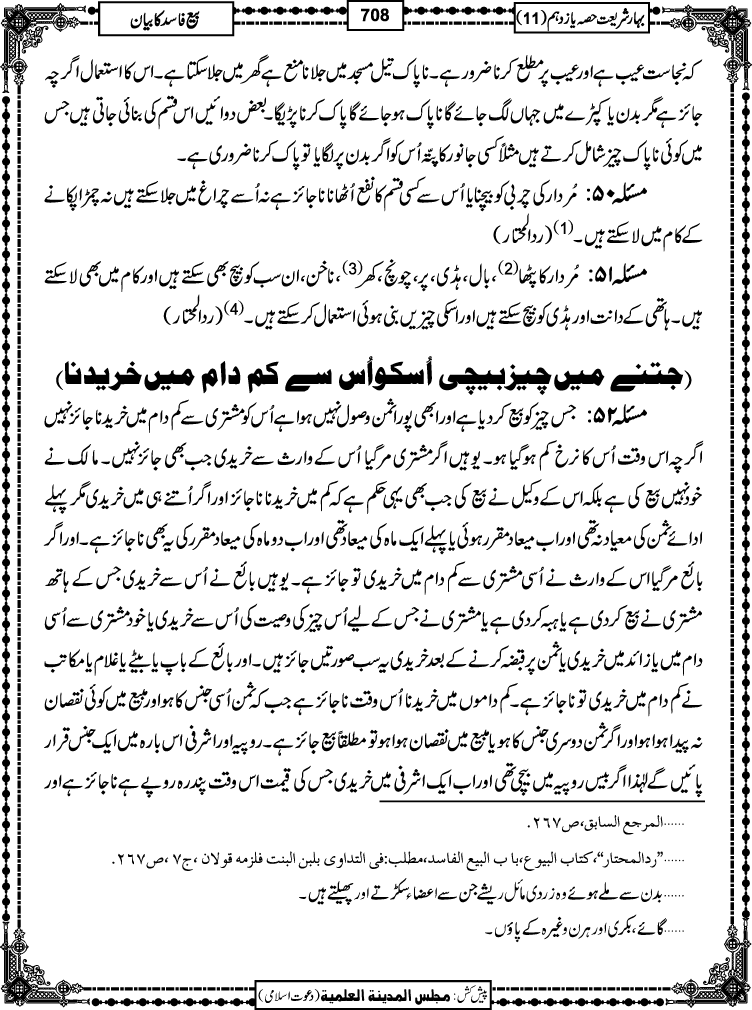 بہار شریعت حصہ یازدہم (11)
708
بیع فاسد کا بیان
کہ نجاست عیب ہے اور عیب پر مطلع کرنا ضرور ہے۔ ناپاک تیل مسجد میں جلانا منع ہے گھر میں جلا سکتا ہے۔ اس کا استعمال اگرچہ
جائز ہے مگر بدن یا کپڑے میں جہاں لگ جائے گا ناپاک ہو جائے گا پاک کرنا پڑیگا۔ بعض دوائیں اس قسم کی بنائی جاتی ہیں جس
میں کوئی ناپاک چیز شامل کرتے ہیں مثلاً کسی جانور کا پِتّہ اُس کو اگر بدن پر لگایا تو پاک کرنا ضروری ہے۔
مسئلہ ۵۰: مُردار کی چربی کو بیچنا یا اُس سے کسی قسم کا نفع اُٹھانا ناجائز ہے نہ اُسے چراغ میں جلا سکتے ہیں نہ چمڑا پکانے
کے کام میں لا سکتے ہیں۔(1) (ردالمحتار)
مسئلہ ۵۱: مُردار کا پٹھا(2)، بال، ہڈی، پر، چونچ، کھر(3)، ناخن، ان سب کو بیچ بھی سکتے ہیں اور کام میں بھی لا سکتے
ہیں۔ ہاتھی کے دانت اور ہڈی کو بیچ سکتے ہیں اور اسکی چیزیں بنی ہوئی استعمال کر سکتے ہیں۔(4) (ردالمحتار)
(جتنے میں چیز بیچی اُسکو اُس سے کم دام میں خریدنا)
مسئلہ ۵۲: جس چیز کو بیع کر دیا ہے اور ابھی پورا ثمن وصول نہیں ہوا ہے اُس کو مشتری سے کم دام میں خریدنا جائز نہیں
اگرچہ اس وقت اُس کا نرخ کم ہو گیا ہو۔ یوہیں اگر مشتری مر گیا اُس کے وارث سے خریدی جب بھی جائز نہیں۔ مالک نے
خود نہیں بیع کی ہے بلکہ اس کے وکیل نے بیع کی جب بھی یہی حکم ہے کہ کم میں خریدنا ناجائز اور اگر اُتنے ہی میں خریدی مگر پہلے
ادائے ثمن کی معیاد نہ تھی اور اب میعاد مقرر ہوئی یا پہلے ایک ماہ کی میعاد تھی اور اب دو ماہ کی میعاد مقرر کی یہ بھی ناجائز ہے۔ اور اگر
بائع مر گیا اس کے وارث نے اُسی مشتری سے کم دام میں خریدی تو جائز ہے۔ یوہیں بائع نے اُس سے خریدی جس کے ہاتھ
مشتری نے بیع کر دی ہے یا ہبہ کر دی ہے یا مشتری نے جس کے لیے اُس چیز کی وصیت کی اُس سے خریدی یا خود مشتری سے اُسی
دام میں یا زائد میں خریدی یا ثمن پر قبضہ کرنے کے بعد خریدی یہ سب صورتیں جائز ہیں۔ اور بائع کے باپ یا بیٹے یا غلام یا مکاتب
نے کم دام میں خریدی تو ناجائز ہے۔ کم داموں میں خریدنا اُس وقت ناجائز ہے جب کہ ثمن اُسی جنس کا ہو اور مبیع میں کوئی نقصان
نہ پیدا ہوا ہو اور اگر ثمن دوسری جنس کا ہو یا مبیع میں نقصان ہوا ہو تو مطلقاً بیع جائز ہے۔ روپیہ اور اشرفی اس بارہ میں ایک جنس قرار
پائیں گے لہٰذا اگر بیس روپیہ میں بیچی تھی اور اب ایک اشرفی میں خریدی جس کی قیمت اس وقت پندرہ روپے ہے ناجائز ہے اور
......المرجع السابق،ص۲٦۷.
......"ردالمحتار"،کتاب البیوع،باب البیع الفاسد،مطلب:فی التداوی بلبن البنت فلزمہ قولان،ج۷،ص۲٦۷.
......بدن سے ملے ہوئے وہ زردی مائل ریشے جن سے اعضاء سکڑتے اور پھیلتے ہیں۔
......گائے، بکری اور ہرن وغیرہ کے پاؤں۔
پیش کش: مجلس المدینۃ العلمیۃ (دعوت اسلامی)